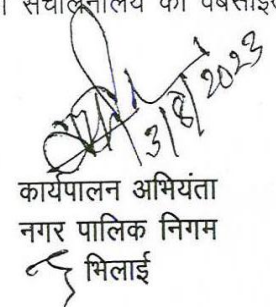 संचालनालय की वेबसाइट
3/8/2023
कार्यपालन अभियंता
नगर पालिक निगम
भिलाई